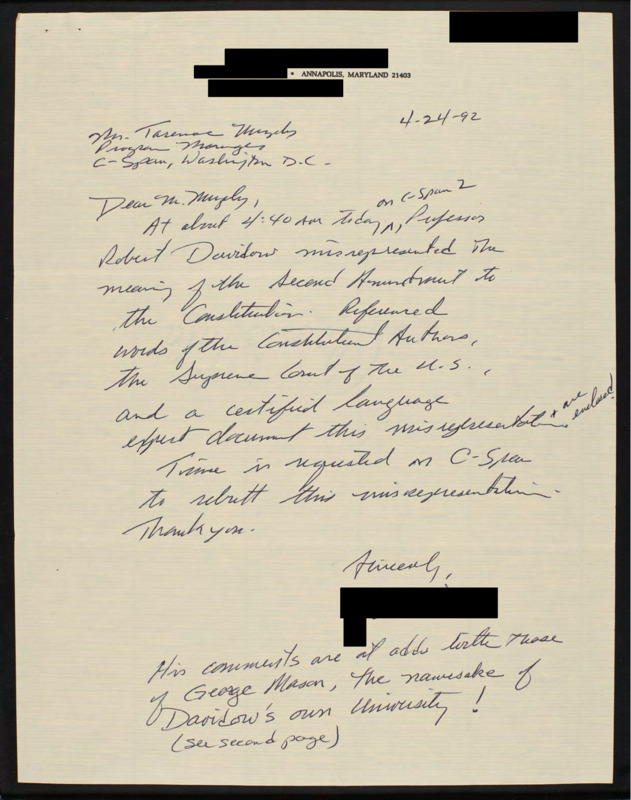 • ANNAPOLIS, MARYLAND 21403
4-24-92
Mr. Terence Murphy
Program Manager
C-Span, Washington D.C.
Dear Mr. Murphy,
on C-Span 2
At about 4:40 AM today ^, Professor
Robert Davidow misrepresented the
meaning of the Second Amendment to
the Constitution. Referenced
words of the Constitution's Authors,
the Supreme Court of the U.S.,
and a certified language
expert document this misrepresentation & are enclosed!
Time is requested on C-Span
to rebutt this misrepresentation.
Thank you.
Sincerely,
His comments are at odds with those
of George Mason, the namesake of
Davidow's own University!
(see second page)